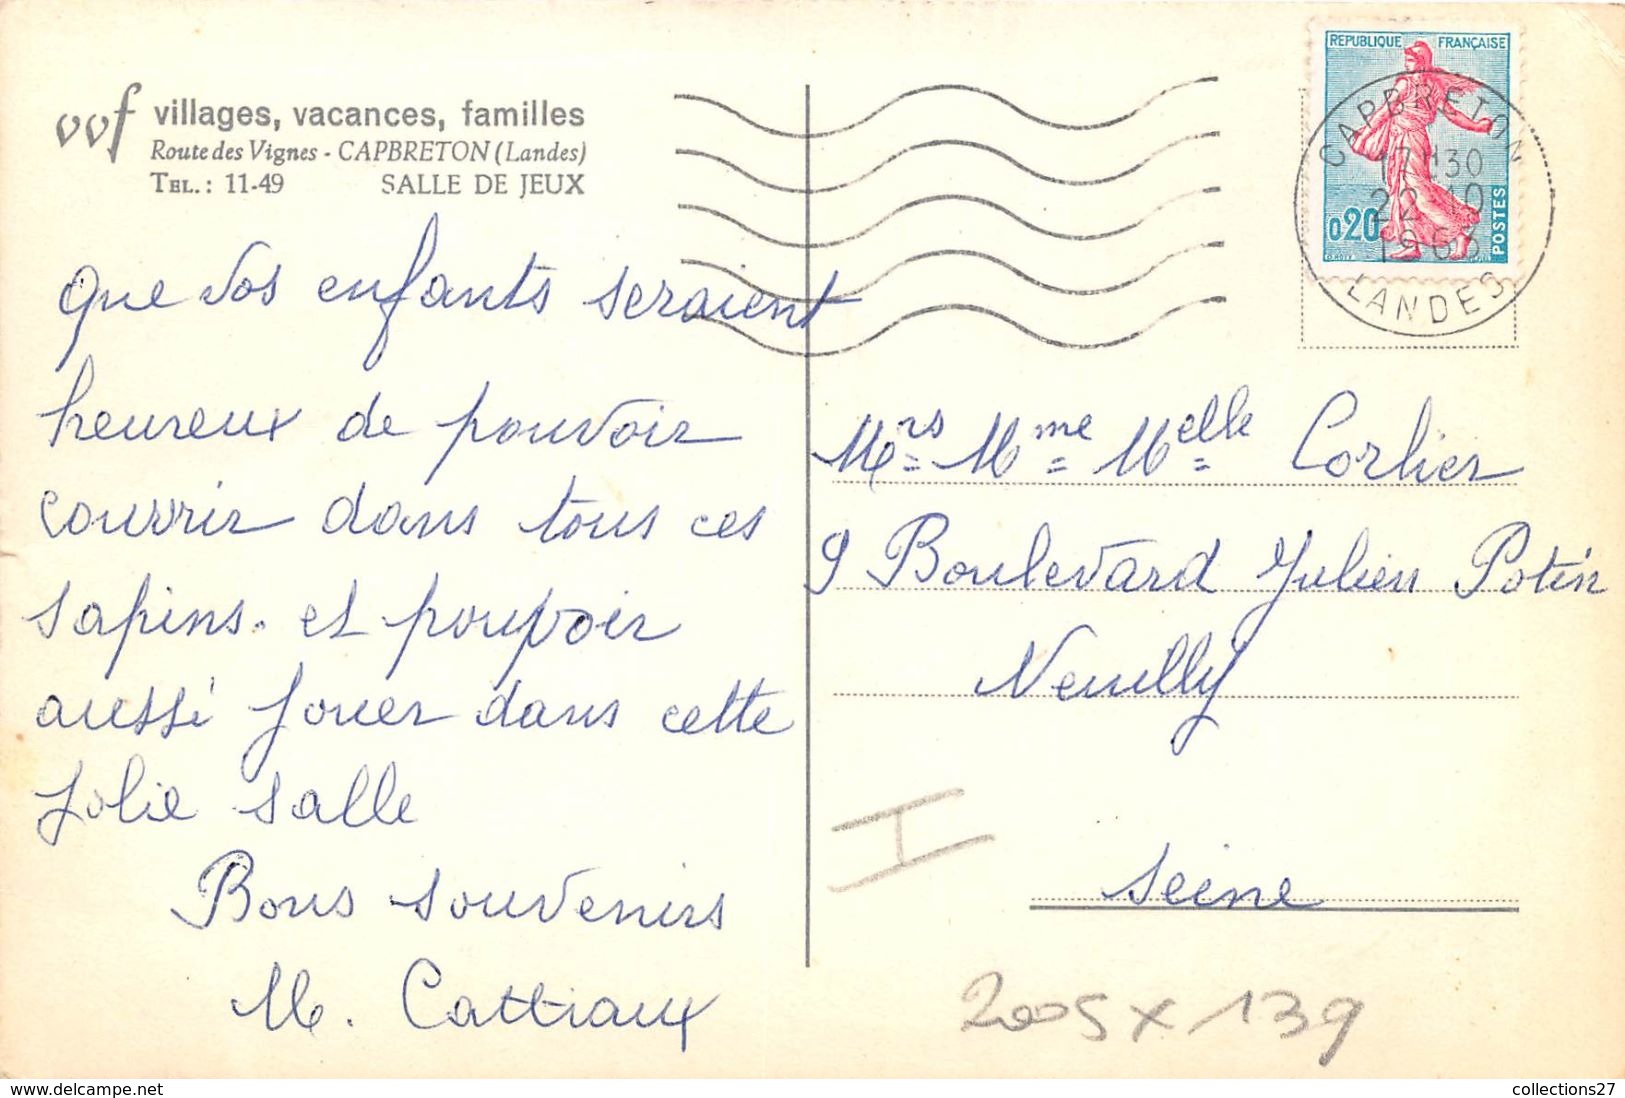 vvf villages, vacances, familles
Route des Vignes - CAPBRETON (Landes)
TEL. : 11-49 SALLE DE JEUX
Que vos enfants seraient
heureux de pouvoir
courrir dans tous ces
sapins. et poupvoir
aussi jouer dans cette
jolie salle
Bons souvenirs
M. Cattiaux
REPUBLIQUE FRANÇAISE
0,20
POSTES
CAPBRETON
17H30
22-10
1963
LANDES
Mrs Mme Melle Corlier
9 Boulevard Julien Potin
Neuilly
Seine
I
2005 x 139
collections27